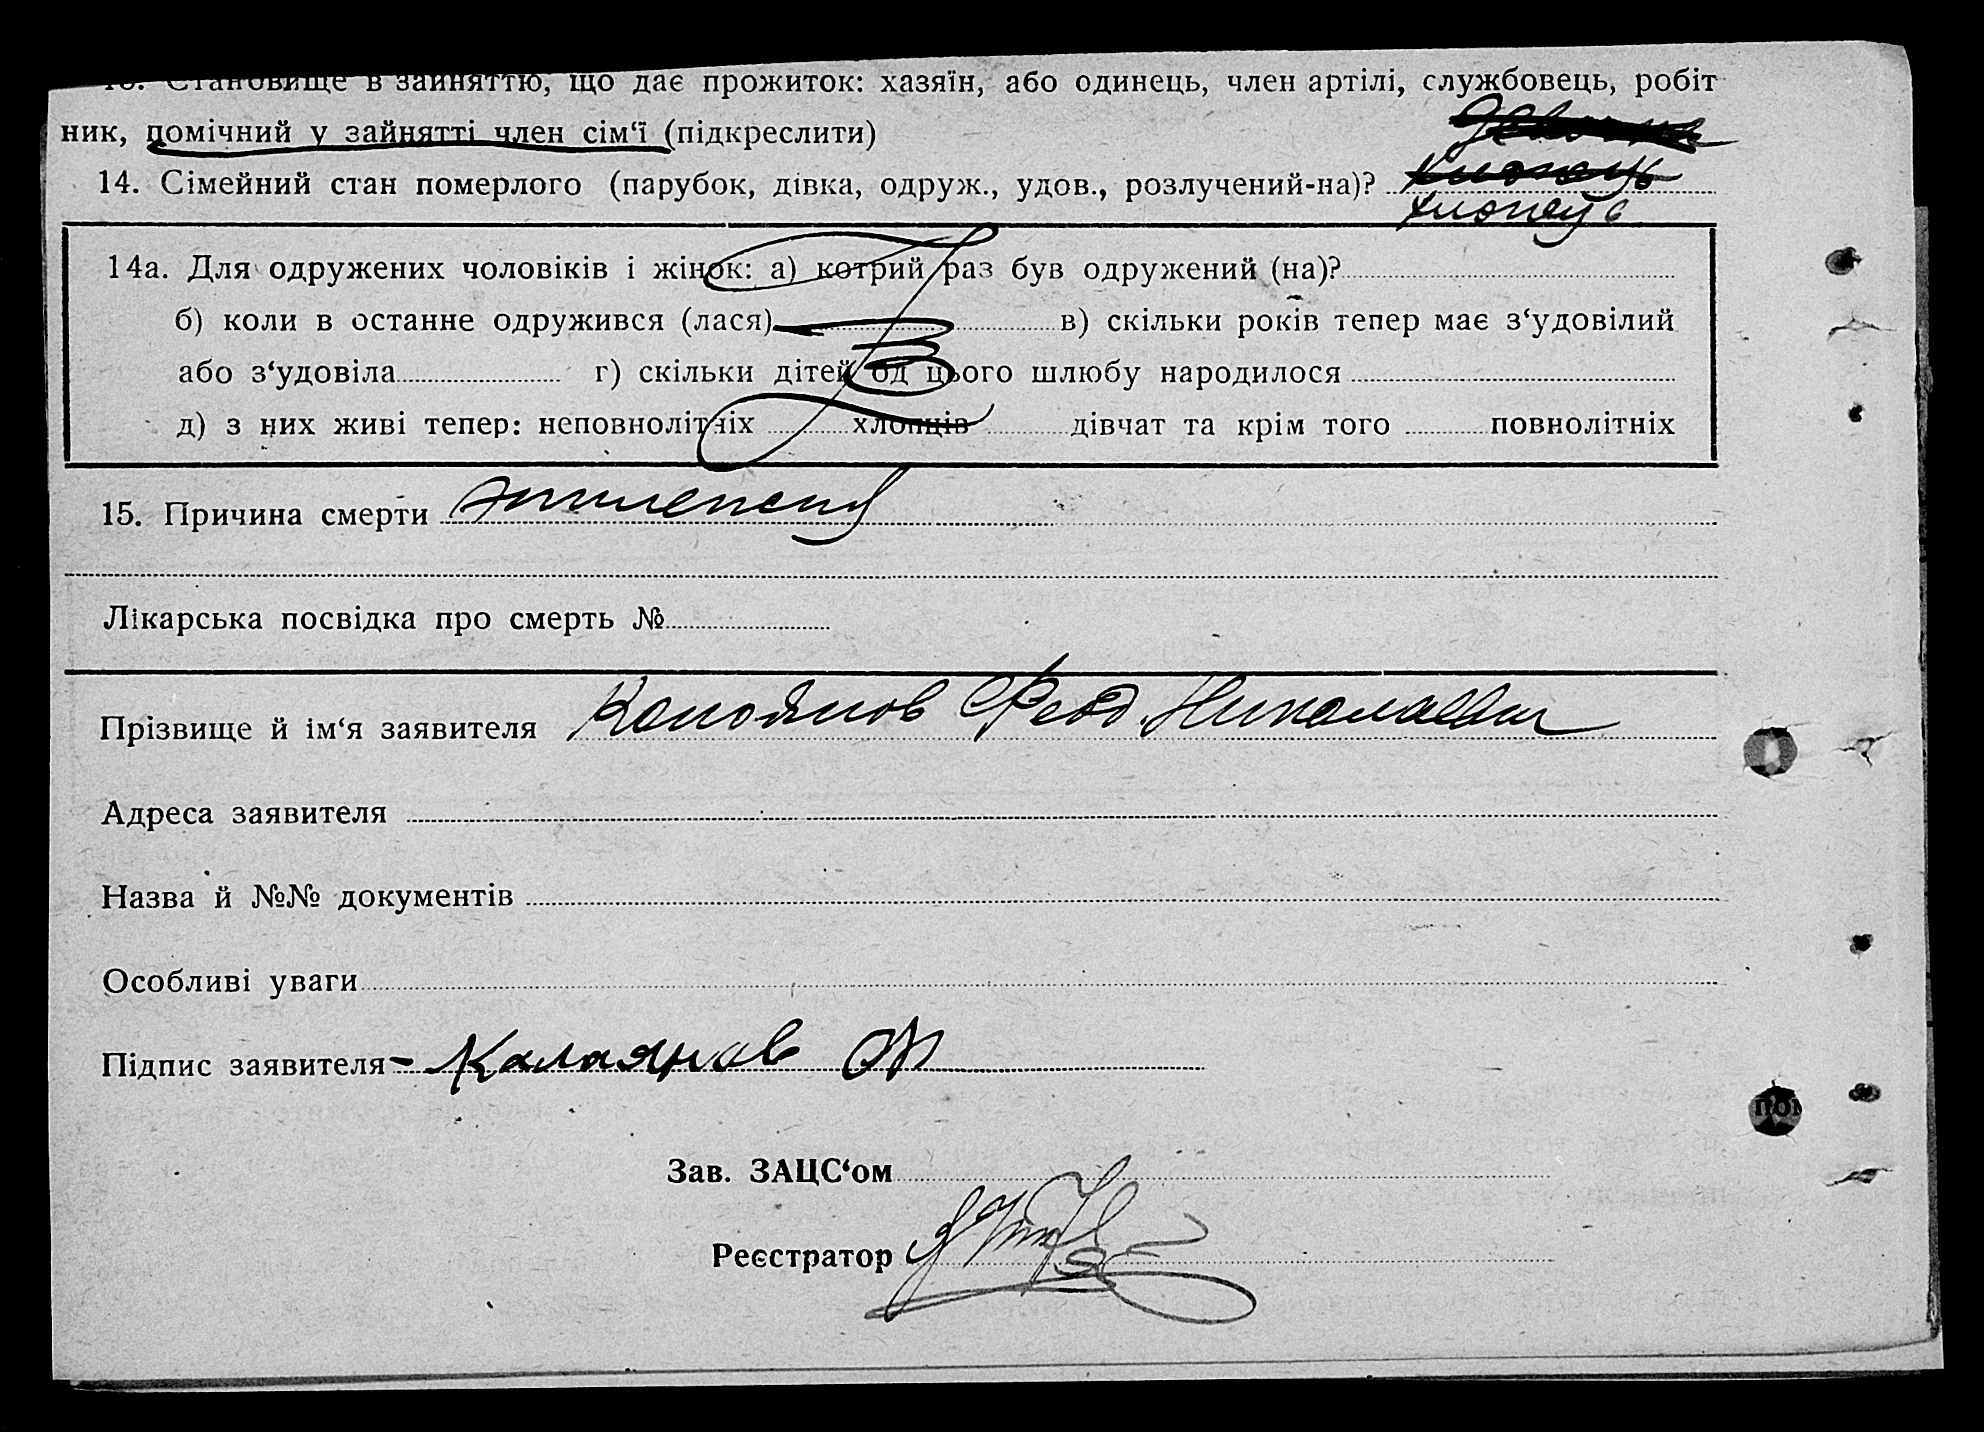 13. Становище в зайняттю, що дає прожиток: хазяїн, або одинець, член артілі, службовець, робіт
ник, помічний у зайнятті член сім‘ї (підкреслити)
14. Сімейний стан померлого (парубок, дівка, одруж., удов., розлучений-на)?
хлопець
14а. Для одружених чоловіків і жінок: а) котрий раз був одружений (на)?
б) коли в останне одружився (лася) в) скільки років тепер має з‘удовілий
або з‘удовіла г) скільки дітей од цього шлюбу народилося
д) з них живі тепер: неповнолітніх хлопців дівчат та крім того повнолітніх
15. Причина смерти эпилепсия
Лікарська посвідка про смерть №
Прізвище й ім‘я заявителя Феод. Николаевич
Адреса заявителя
Назва й №№ документів
Особливі уваги
Підпис заявителя - Калоянов Ф
Зав. ЗАЦС‘ом
Реєстратор